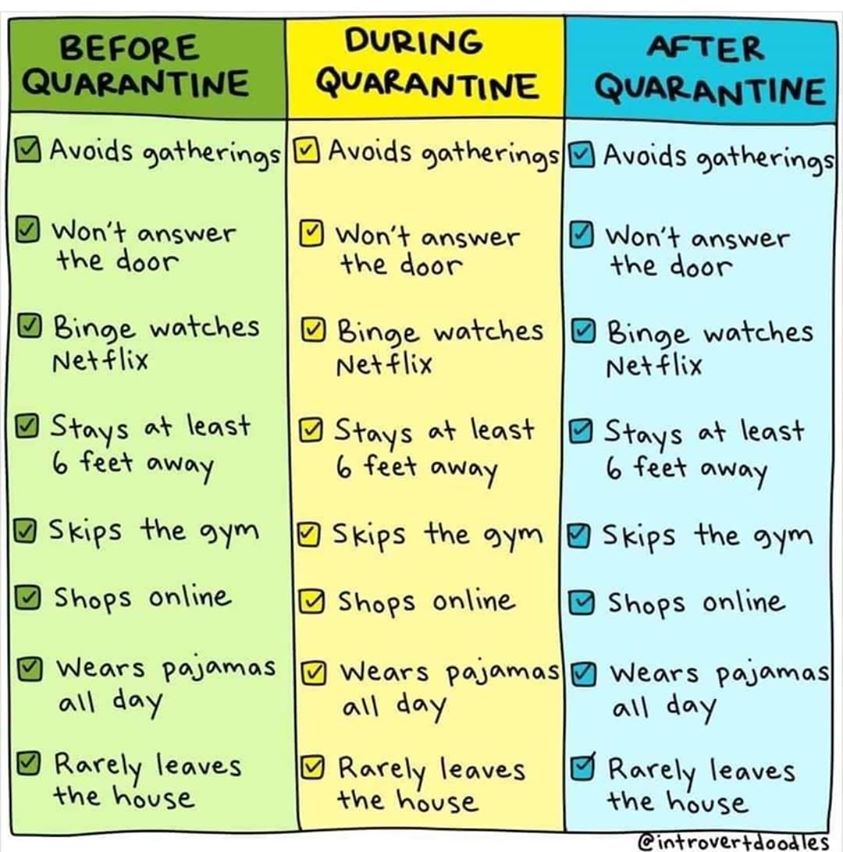 BEFORE
QUARANTINE
Avoids gatherings
Won't answer
the door
Binge watches
Netflix
Stays at least
6 feet away
Skips the gym
Shops online
Wears pajamas
all day
Rarely leaves
the house
DURING
QUARANTINE
Avoids gatherings
Won't answer
the door
Binge watches
Netflix
Stays at least
6 feet away
Skips the gym
Shops online
Wears pajamas
all day
Rarely leaves
the house
AFTER
QUARANTINE
Avoids gatherings
Won't answer
the door
Binge watches
Netflix
Stays at least
6 feet away
Skips the gym
Shops online
Wears pajamas
all day
Rarely leaves
the house
@introvertdoodles